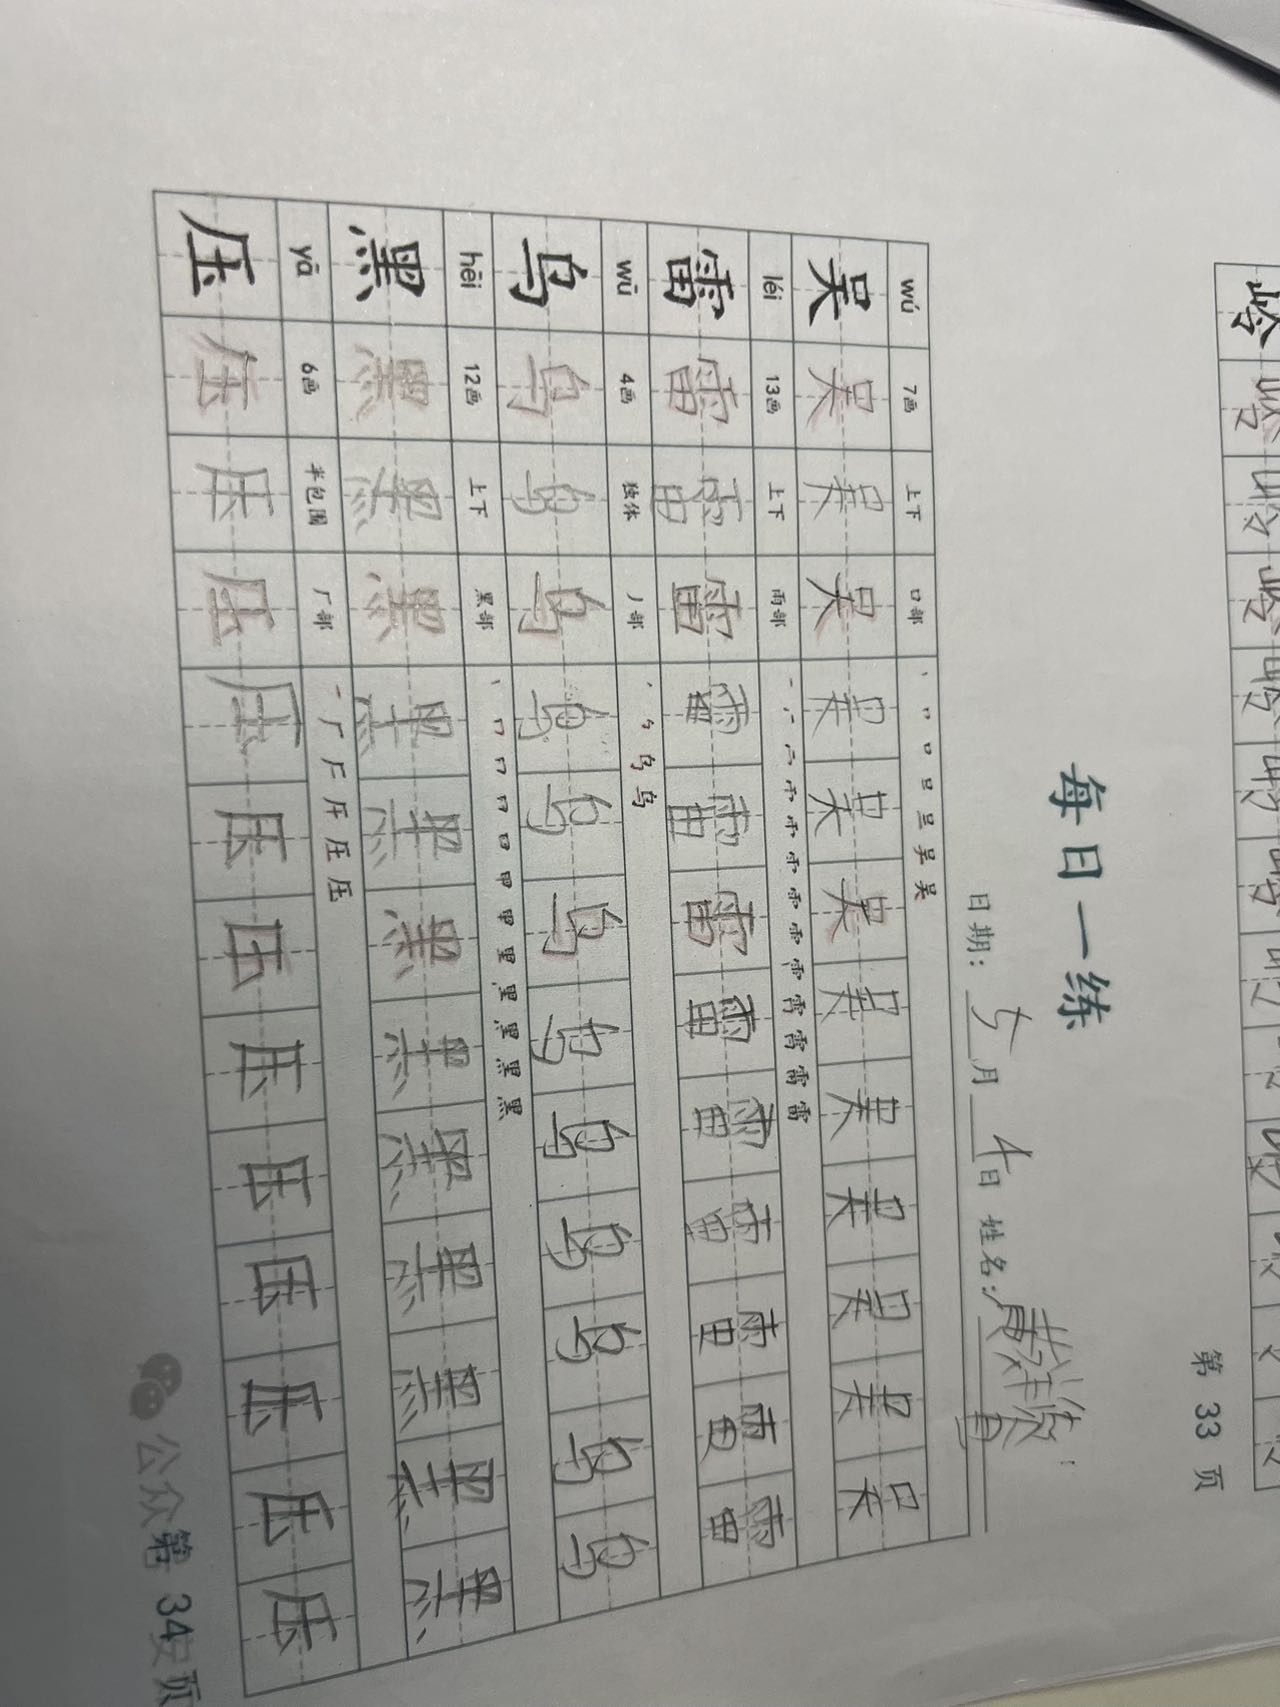 第 33 页
每日一练
日期: 5 月 4 日 姓名:
wú 7画 上下 口部 口 吴
吴 吴 吴 吴 吴 吴 吴 吴 吴 吴 吴 吴 吴
léi 13画 上下 雨部 雨 雷
雷 雷 雷 雷 雷 雷 雷 雷 雷 雷 雷 雷 雷
wū 4画 独体 丿部 乌 乌
乌 乌 乌 乌 乌 乌 乌 乌 乌 乌 乌 乌 乌
hēi 12画 上下 黑部 里 黑
黑 黑 黑 黑 黑 黑 黑 黑 黑 黑 黑 黑 黑
yā 6画 半包围 厂部 一 厂 圧 压
压 压 压 压 压 压 压 压 压 压 压 压 压
公众
第 34 页